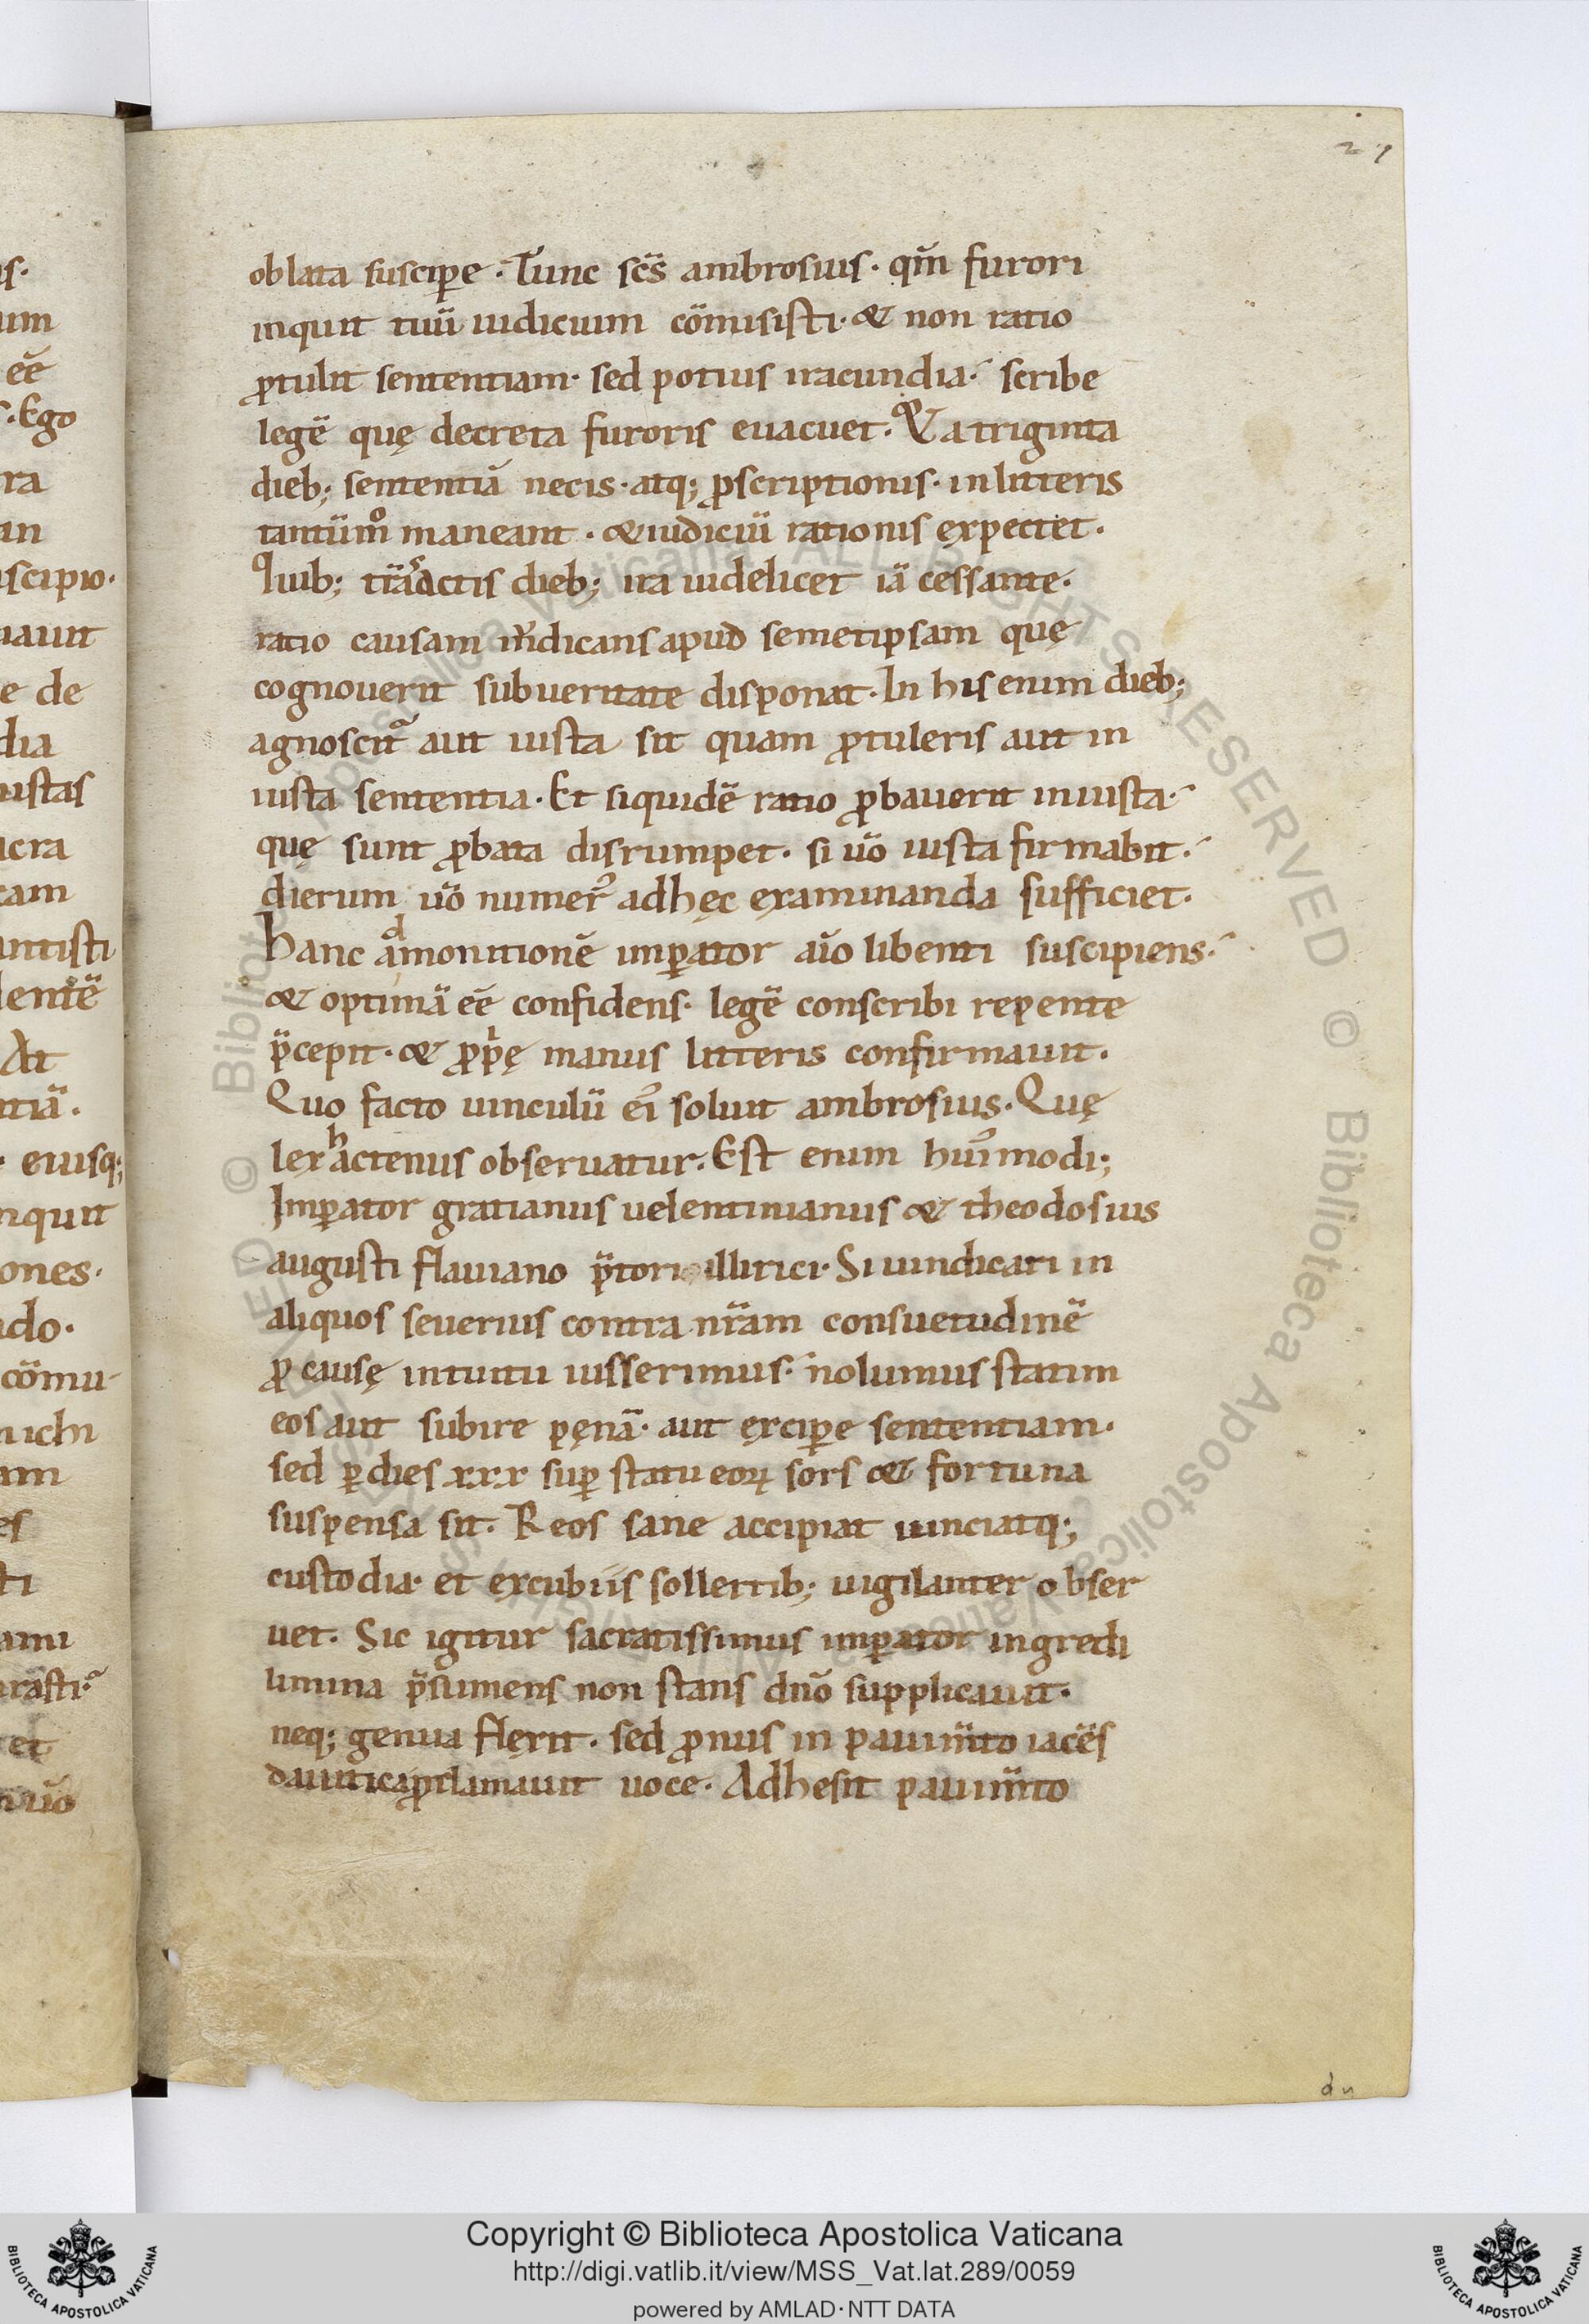 29
oblata suscip̄e. Tunc sc̄s ambrosius. qm̄ furori
inquit tuū iudicium cōmisisti. & non ratio
ꝓtulit sententiam. sed potius iracundia. scribe
legē quę decreta furoris euacuet. Vt a triginta
dieb; sententiā necis. atq; ꝓscriptionis. in litteris
tantūmͦ maneant. & iudiciū rationis expectet.
Quib; trāsactis dieb; ira uidelicet iā cessante.
ratio causam iudicans apud semetipsam quę
cognouerit sub ueritate disponat. In his enim dieb;
agnoscit᷑ aut iusta sit quam ꝓtuleris aut in
iusta sententia. Et siquidē ratio ꝓbauerit iniusta.
quę sunt ꝓbata disrumpet. si uō iusta firmabit.
dierum uō numer᷒ ad hęc examinanda sufficiet.
Hanc admonitionē imp̄ator aīo libenti suscipiens.
& optimā eē confidens. legē conscribi repente
p̄cepit. & ꝓpⁱę manus litteris confirmauit.
Quo facto uinculū ei᷒ soluit ambrosius. Quę
lex hactenus obseruatur. Est enim hui᷒modi;
Imꝑator gratianus uelentinianus & theodosius
augusti flauiano p̄tori illirici. Si uindicari in
aliquos seuerius contra nr̄am consuetudinē
ꝓ causę intuitu iusserimus. nolumus statim
eos aut subire pęnā. aut ęxciꝑe sententiam.
sed ꝑ dies xxx suꝑ statu eoꝝ sors & fortuna
suspensa sit. Reos sane accipiat uinciatq;
custodia. et excubiis sollertib; uigilanter obser
uet. Sic igitur sacratissimus imꝑator ingredi
limina p̄sumens non stans dn̄o supplicauit.
neq; genua flęxit. sed ꝓnus in pauim̄to iacēs
dauitica ꝓclamauit uoce. Adhesit pauim̄to
Copyright © Biblioteca Apostolica Vaticana
http://digi.vatlib.it/view/MSS_Vat.lat.289/0059
powered by AMLAD·NTT DATA
BIBLIOTECA APOSTOLICA VATICANA
BIBLIOTECA APOSTOLICA VATICANA